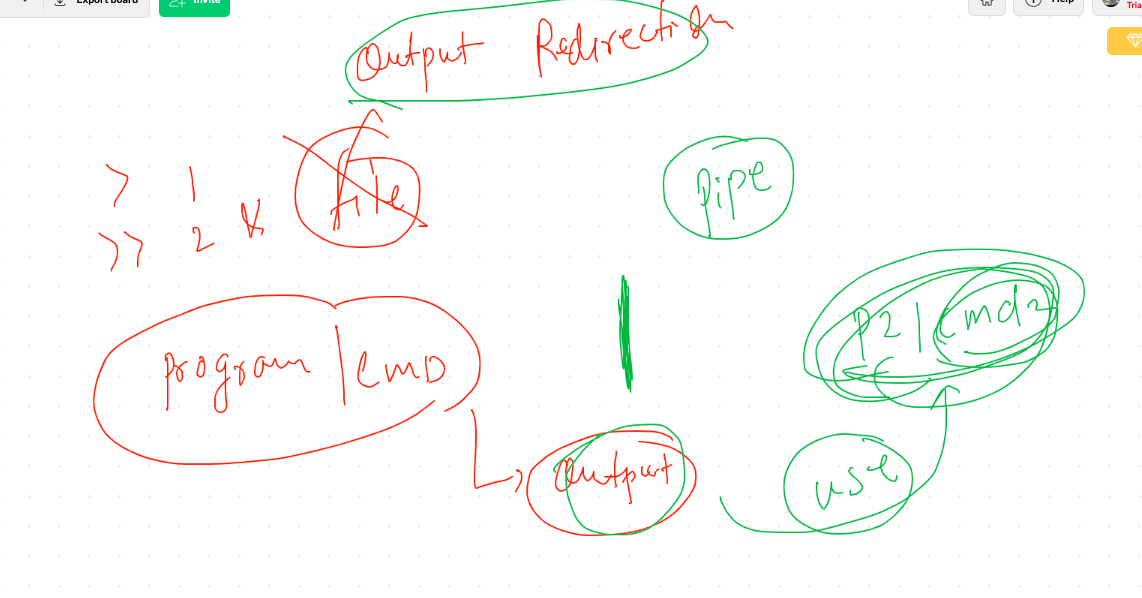 Export board
Invite
Help
Tria
Output Redirection
> 1
>> 2
File
Pipe
Program | CMD
P2 | Cmd2
Output
use